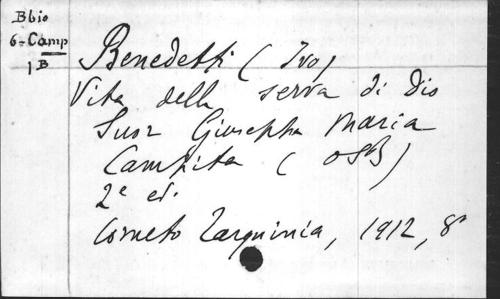 Bbio
6-Camp
1B
Benedetti (Ivo)
Vita della serva di Dio
Suor Giuseppa Maria
Campita (OSB)
2e ed.
Corneto Tarquinia, 1912, 8°